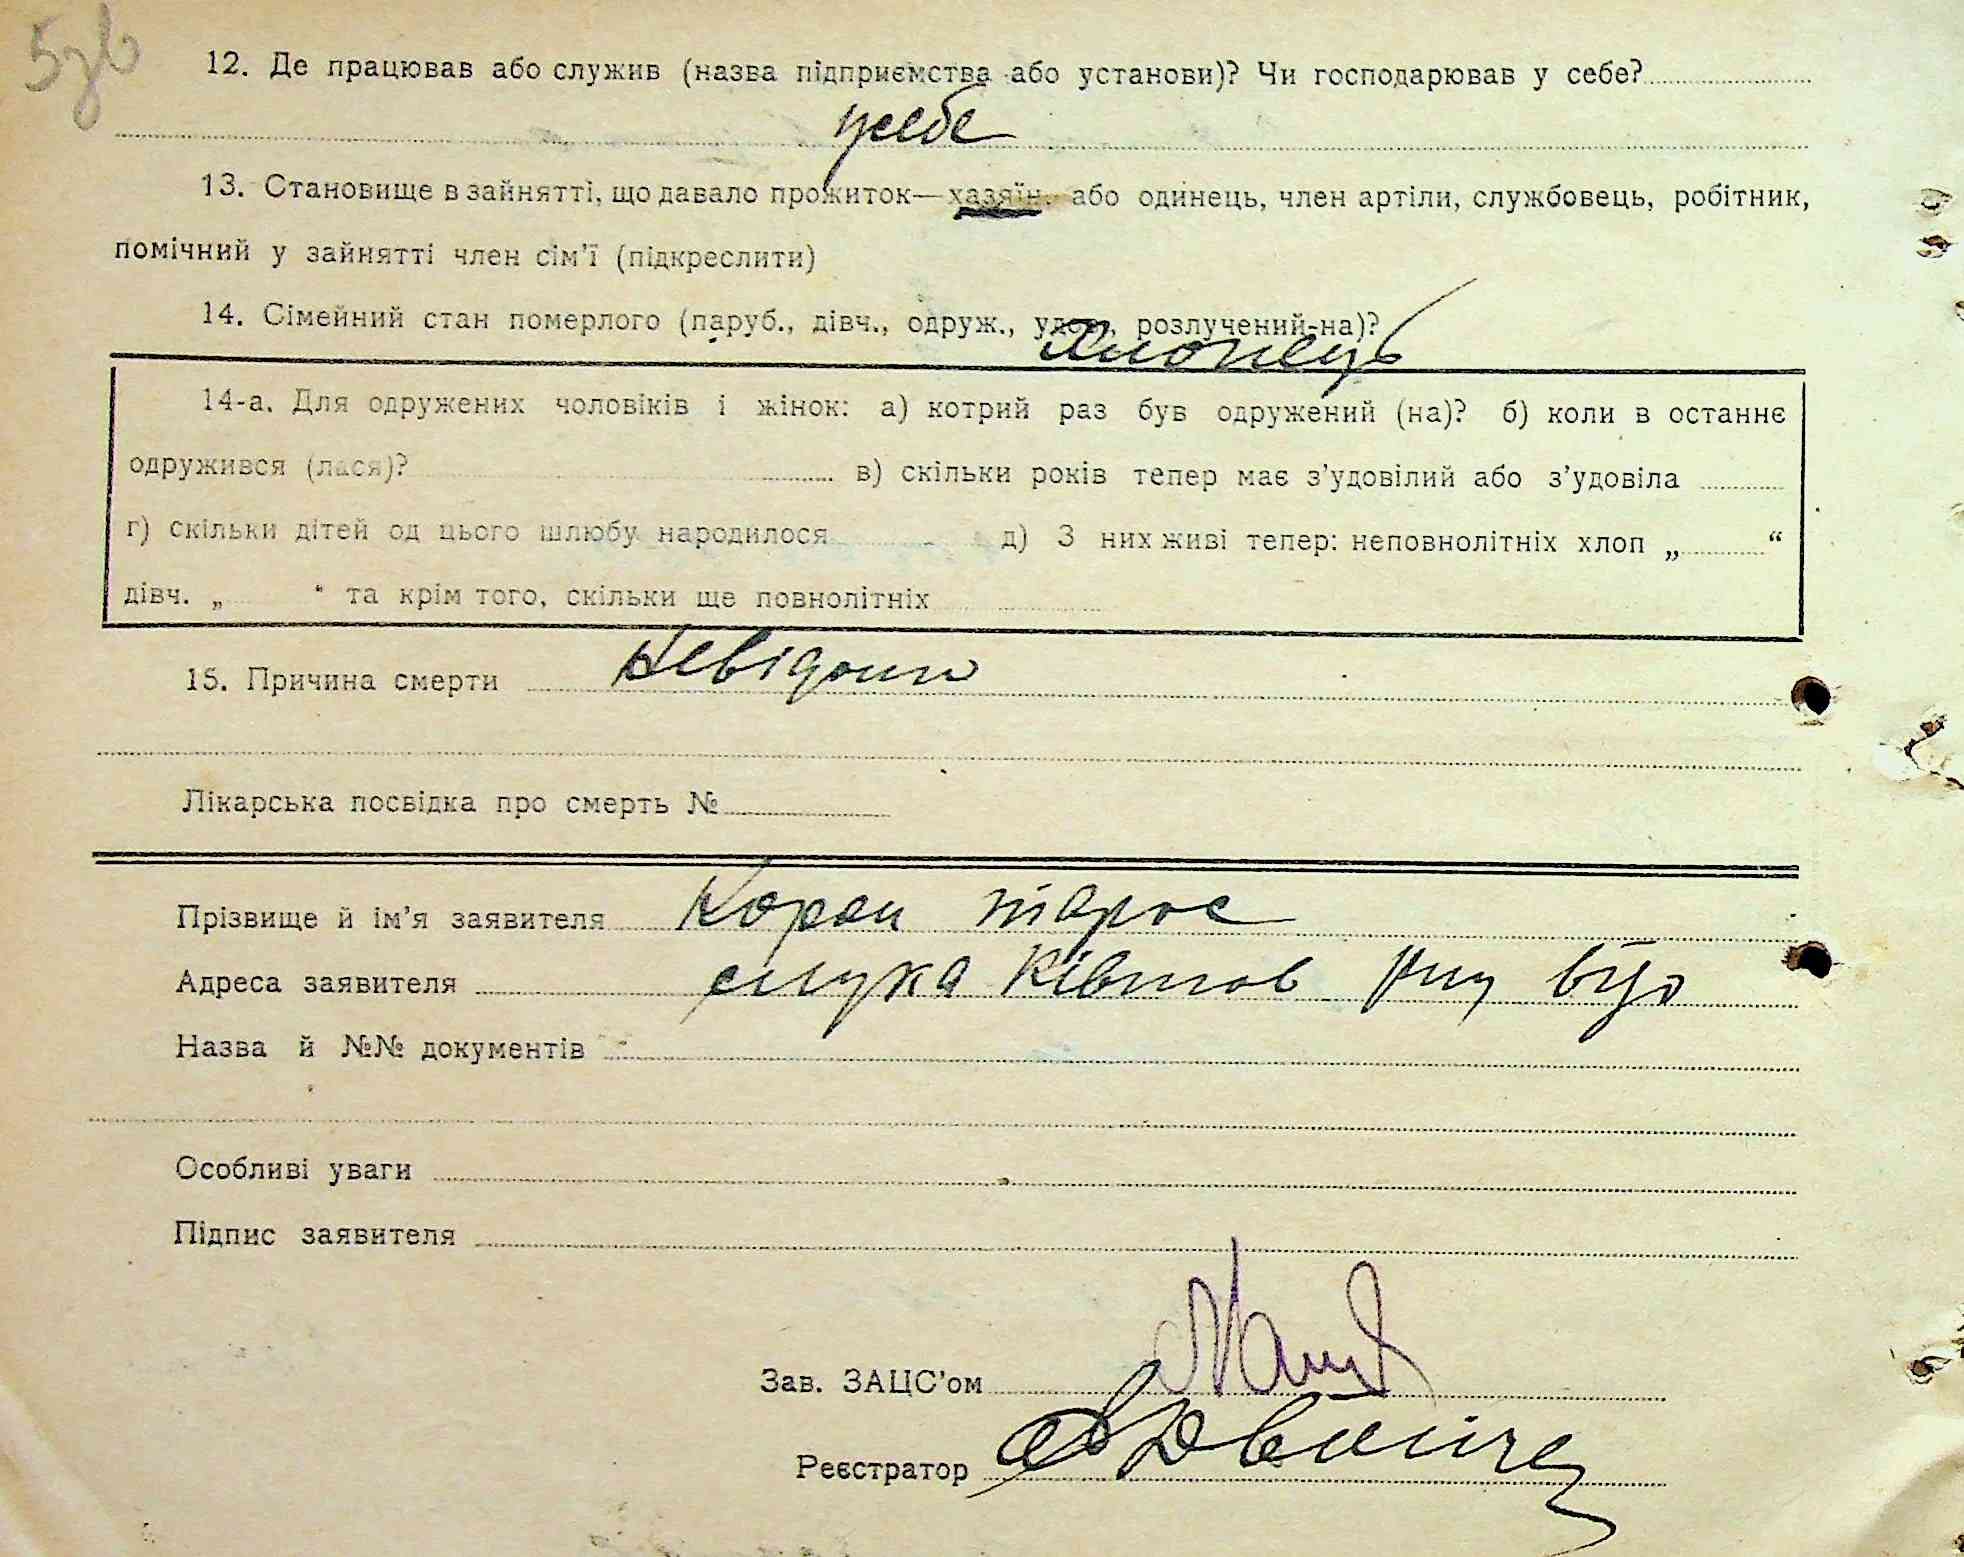 5зв
12. Де працював або служив (назва підприємства або установи)? Чи господарював у себе?
усебе
13. Становище в зайнятті, що давало прожиток—хазяїн, або одинець, член артіли, службовець, робітник,
помічний у зайнятті член сім'ї (підкреслити)
14. Сімейний стан померлого (паруб., дівч., одруж., удов., розлучений-на)?
Хлопець
14-а. Для одружених чоловіків і жінок: а) котрий раз був одружений (на)? б) коли в останнє
одружився (лася)? в) скільки років тепер має з'удовілий або з'удовіла
г) скільки дітей од цього шлюбу народилося д) З них живі тепер: неповнолітніх хлоп „ “
дівч. „ “ та крім того, скільки ще повнолітніх
15. Причина смерти Невідома
Лікарська посвідка про смерть №
Прізвище й ім'я заявителя Тарас
Адреса заявителя
Назва й №№ документів
Особливі уваги
Підпис заявителя
Зав. ЗАЦС'ом
Реєстратор